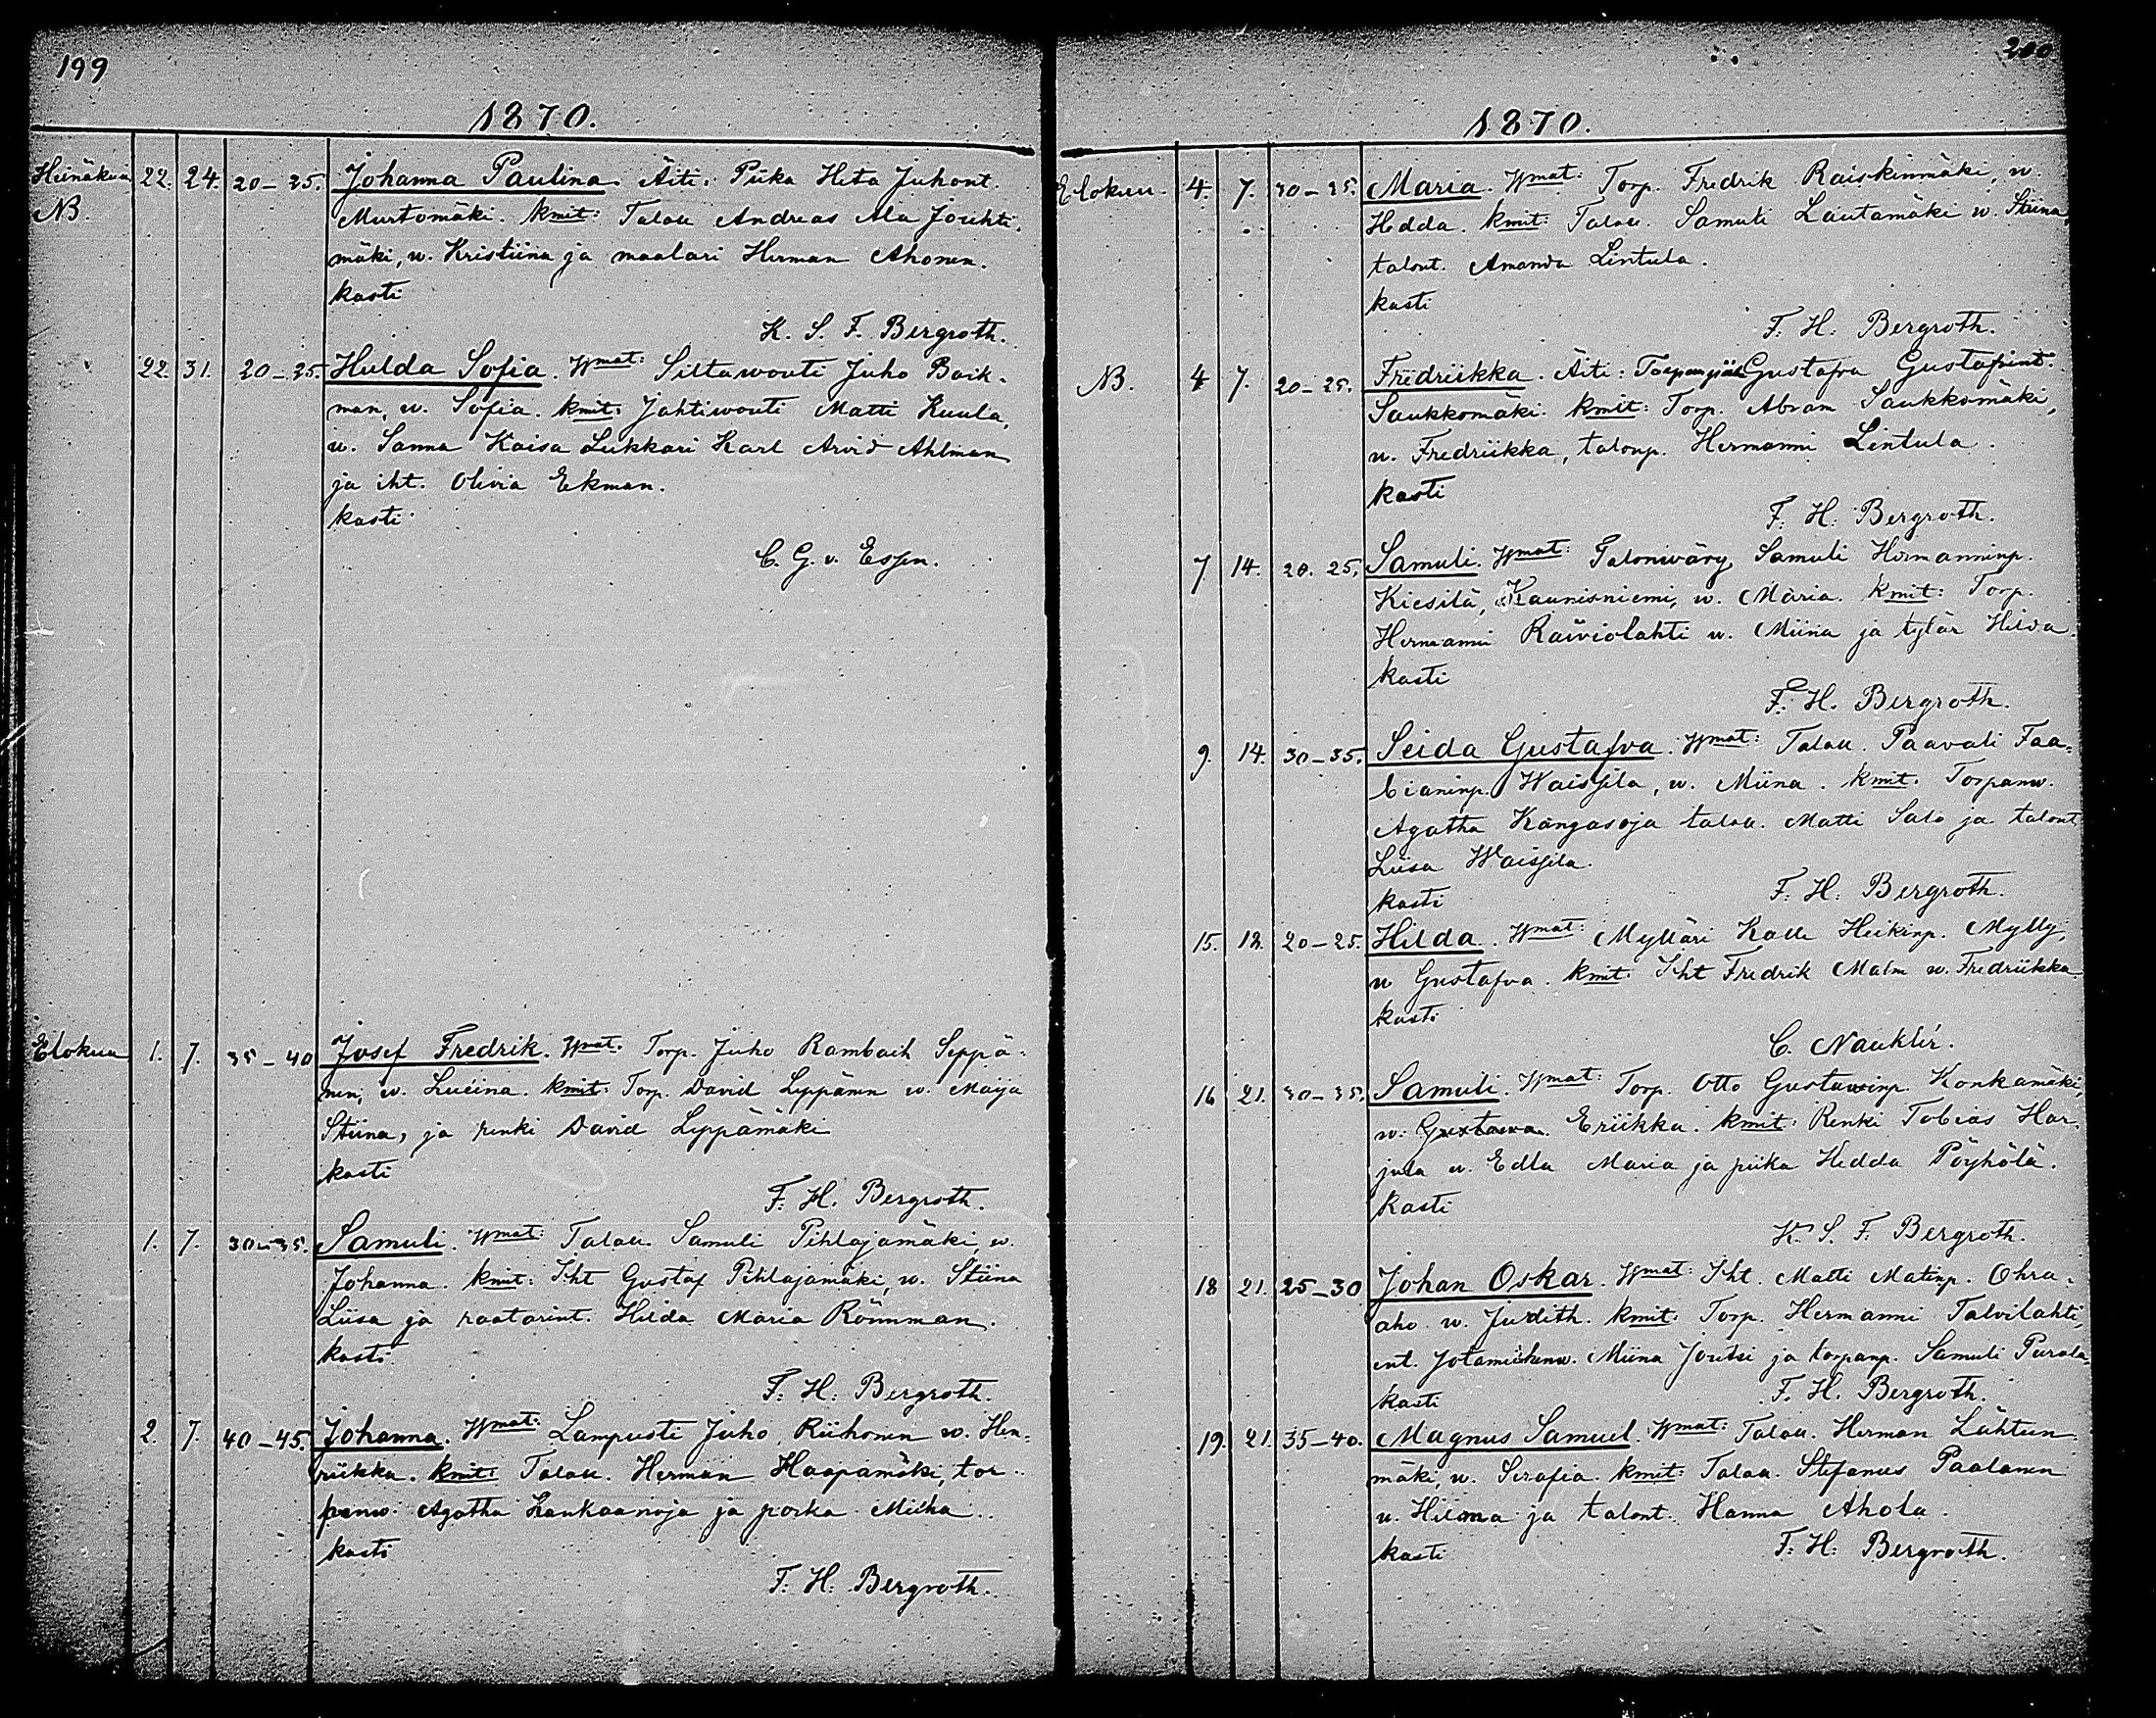 199
1870.
Heinäkuu 22. 24. 20-25. Johanna Paulina. Äiti: Piika Heta Juhont.
NB. Murtomäki. kmit: Talou Andreas Ala Jouhti-
mäki, w. Kristiina ja maalari Herman Ahonen.
kasti
K. S. F. Bergroth.
22. 31. 20-25. Hulda Sofia. Wmat: Siltawouti Juho Backman
man, w. Sofia. kmit: Jahtiwouti Matti Kuula,
w. Sanna Kaisa Lukkari Karl Arvid Ahlman
ja iht. Olivia Ekman.
kasti
C. G. v. Essen.
Elokuu 1. 7. 35-40 Josef Fredrik. Wmat: Torp. Juho Rambach Seppä-
nen, w. Luviina. kmit: Torp. David Leppänen w. Maija
Stiina, ja renki David Leppämäki
kasti
F. H. Bergroth.
1. 7. 30-35. Samuli. Wmat: Talou. Samuli Pihlajamäki, w.
Johanna. kmit: Iht Gustaf Pihlajamäki, w. Stiina
Liisa ja raatarint. Hilda Maria Rönnman.
kasti
F. H. Bergroth.
2. 7. 40-45. Johanna. Wmat: Lampusti Juho Riihonen w. Hen-
riikka. kmit: Talou. Herman Haapamäki, tor-
panw. Agatha Lankaanoja ja poika Miikka.
kasti
F. H. Bergroth.
200
1870.
Elokuu. 4. 7. 30-35. Maria. Wmat: Torp. Fredrik Raiskinmäki, w.
Hedda. kmit: Talou. Samuli Lautamäki w. Stiina
talont. Amanda Lintula.
kasti
F. H. Bergroth.
NB. 4 7. 20-25. Fredriikka. Äiti: Gustafva Gustafint.
Saukkomäki. kmit: Torp. Abram Saukkomäki,
w. Fredriikka, talonp. Hermanni Lintula.
kasti
F. H. Bergroth.
7 14. 20. 25. Samuli. Wmat: Taloniwäry Samuli Hermanninp.
Kiesilä, Kaunisniemi, w. Maria. kmit: Torp.
Hermanni Raiviolahti w. Miina ja tytär Hilda.
kasti
F. H. Bergroth.
9. 14. 30-35. Seida Gustafva. Wmat: Talou. Paavali Faa-
bianinp. Waissila, w. Miina. kmit: Torpanw.
Agatha Kangasoja talou. Matti Salo ja talont.
Liisa Waissila.
kasti F. H. Bergroth.
15. 18. 20-25. Hilda. Wmat: Mylläri Kalle Heikinp. Mylly,
w Gustafva. kmit: Iht Fredrik Malm w. Fredriikka
kasti
C. Naukler.
16 21. 30-35. Samuli. Wmat: Torp. Otto Gustawinp. Konkamäki,
w. Gustawa Eriikka. kmit: Renki Tobias Har-
jula w. Edla Maria ja piika Hedda Pöyhölä.
kasti
K. S. F. Bergroth.
18 21. 25-30 Johan Oskar. Wmat: Iht. Matti Matinp. Ohra-
aho w. Judith. kmit: Torp. Hermanni Talvilahti,
ent. Miina Joutsi ja torpanp. Samuli Purola.
kasti F. H. Bergroth.
19. 21. 35-40. Magnus Samuel. Wmat: Talou. Herman Lähteen-
mäki, w. Serafia. kmit: Talou. Stefanus Paalanen
w. Hilma ja talont. Hanna Ahola.
kasti F. H. Bergroth.